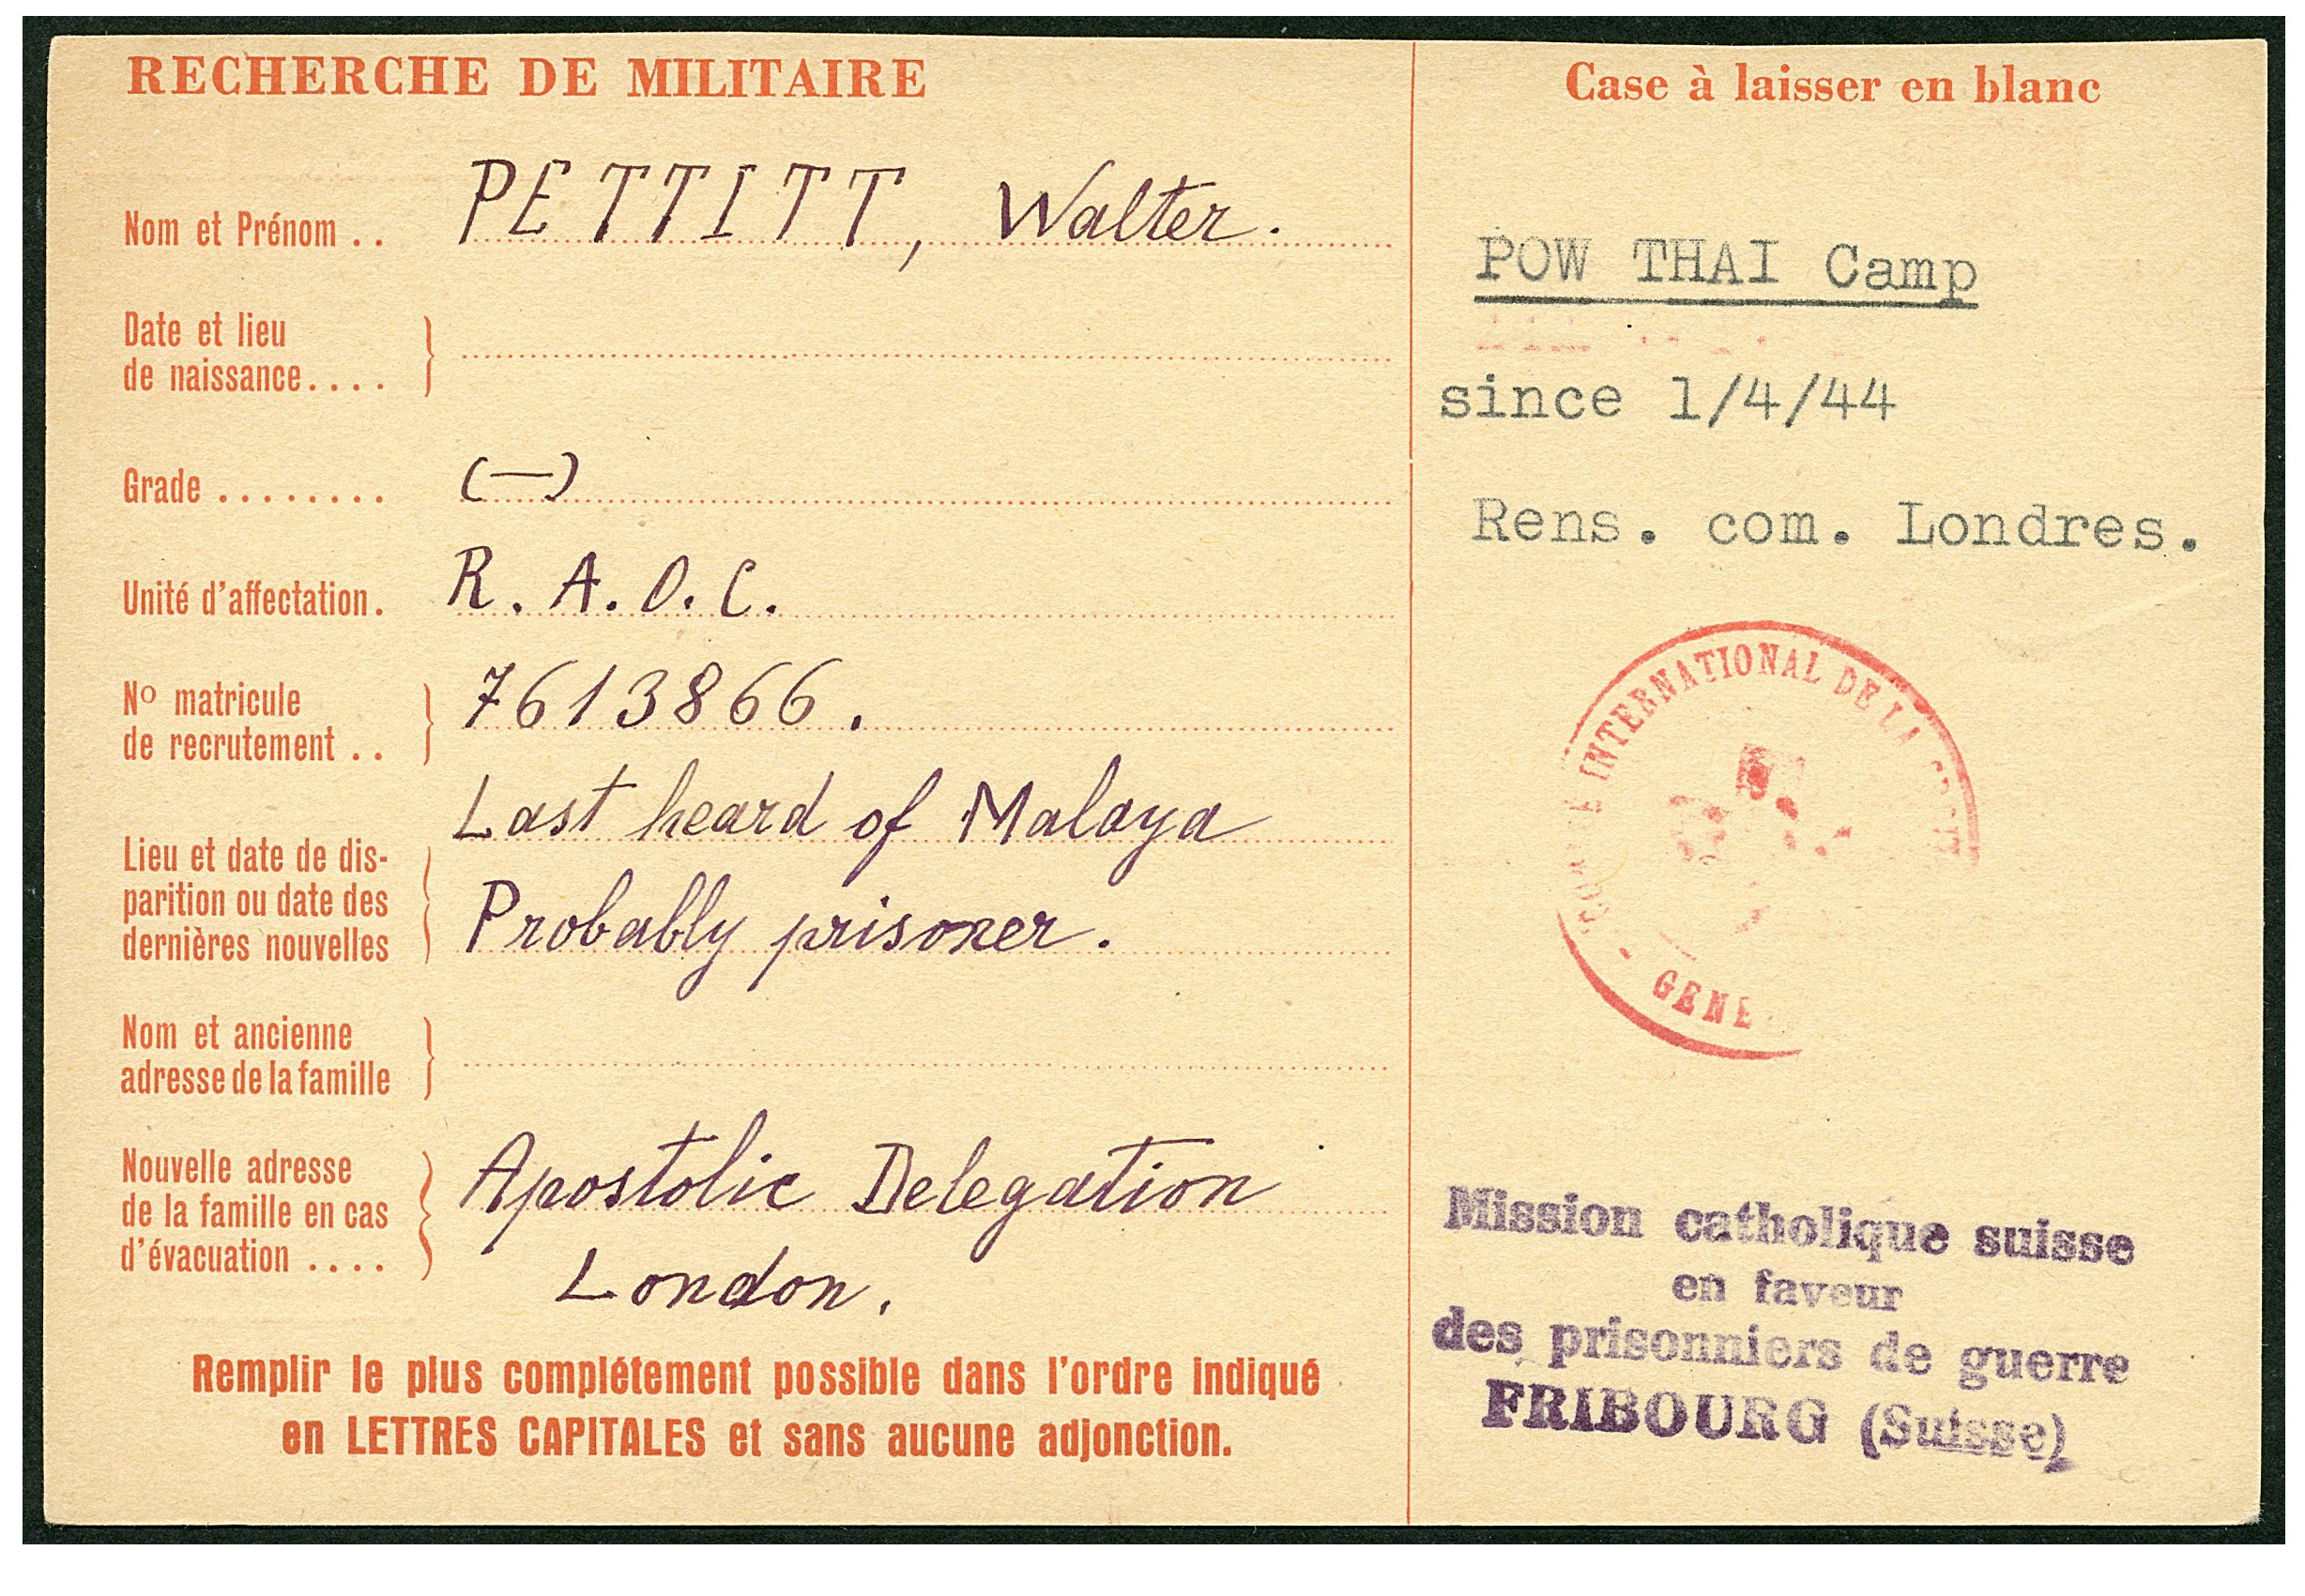 RECHERCHE DE MILITAIRE
Nom et Prénom . . PETTITT, Walter.
Date et lieu
de naissance . . . .
Grade . . . . . . . . (—)
Unité d'affectation. R. A. O. C.
No matricule
de recrutement . . 7613866.
Lieu et date de dis-
parition ou date des
dernières nouvelles
Last heard of Malaya
Probably prisoner.
Nom et ancienne
adresse de la famille
Nouvelle adresse
de la famille en cas
d'évacuation . . . .
Apostolic Delegation
London.
Remplir le plus complétement possible dans l'ordre indiqué
en LETTRES CAPITALES et sans aucune adjonction.
Case à laisser en blanc
POW THAI Camp
since 1/4/44
Rens. com. Londres.
INTERNATIONAL DE LA
GENE
Mission catholique suisse
en faveur
des prisonniers de guerre
FRIBOURG (Suisse)